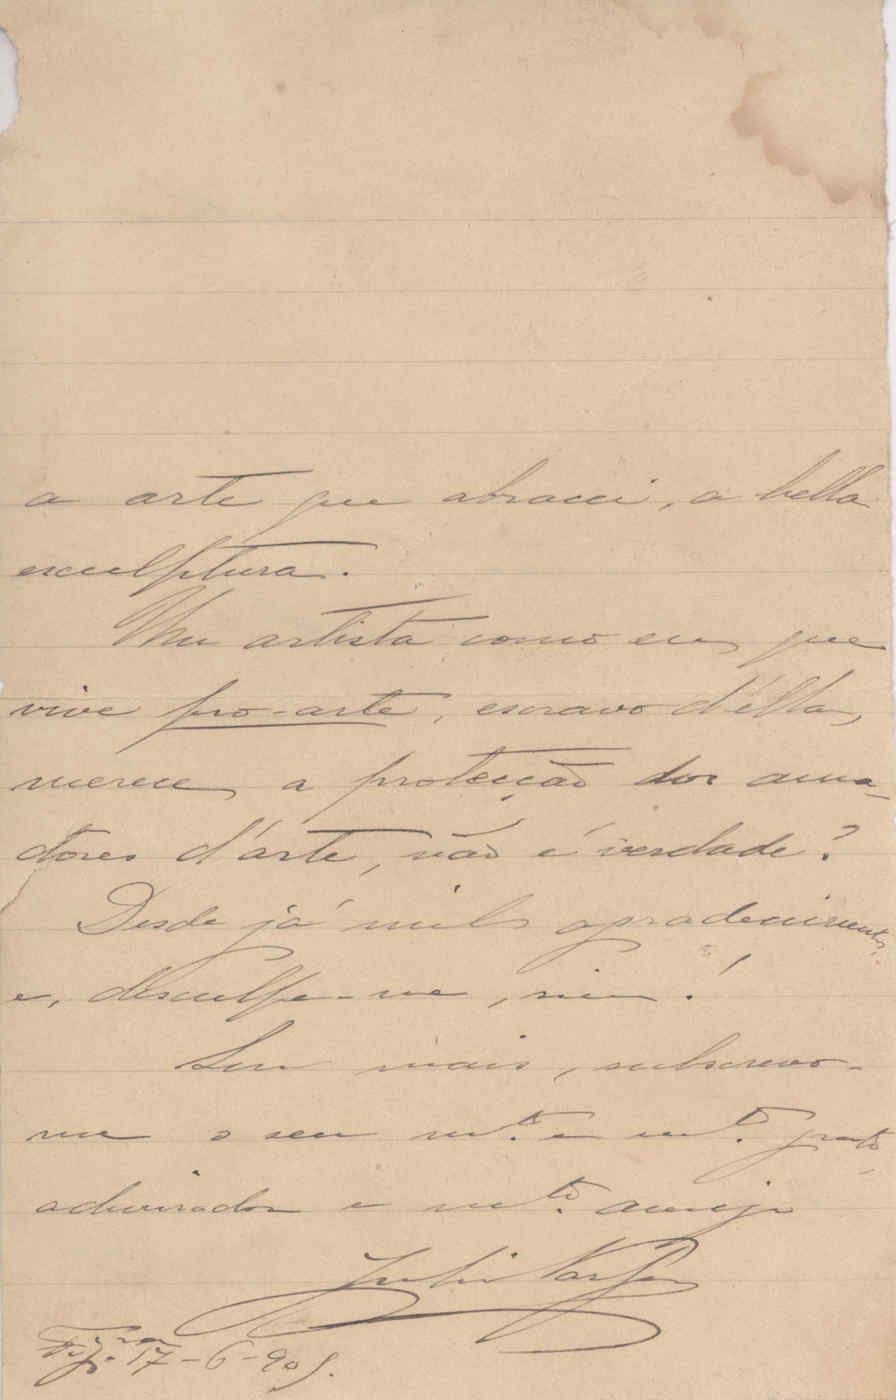 a arte que abracei, a bella
esculptura.
Um artista como eu, que
vive pro-arte, escravo d'élla,
merece, a protecção dos ama-
dores d'arte, não é verdade?
Desde já mil agradecimentos,
e, desculpe-me, sim!
Sem mais, subscrevo-
me o seu mt.º e mt.º grato
admirador e mtº. amigo
Julio Vaz
17-6-905.